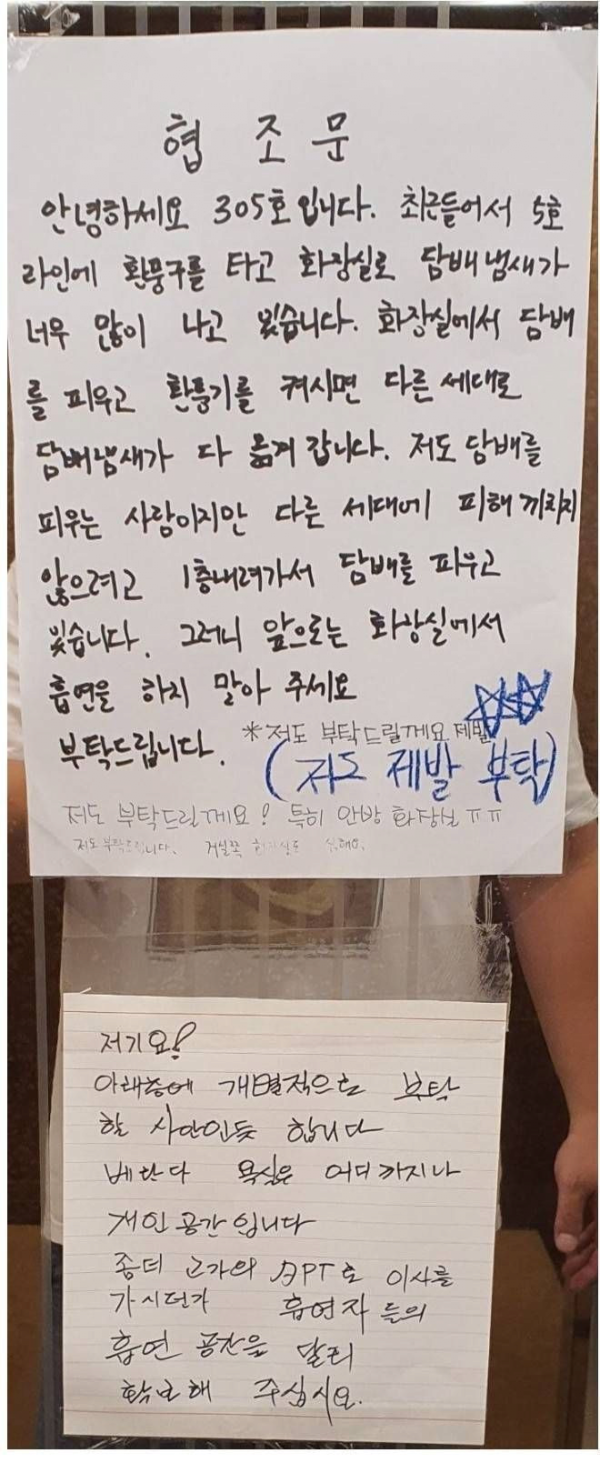 협 조 문
안녕하세요 305호입니다. 최근들어서 5호
라인에 환풍구를 타고 화장실로 담배냄새가
너무 많이 나고 있습니다. 화장실에서 담배
를 피우고 환풍기를 켜시면 다른 세대로
담배냄새가 다 옮겨 갑니다. 저도 담배를
피우는 사람이지만 다른 세대에 피해 끼치지
않으려고 1층내려가서 담배를 피우고
있습니다. 그러니 앞으로는 화장실에서
흡연을 하지 말아 주세요
부탁드립니다. *저도 부탁드릴께요 제발
(저도 제발 부탁)
저도 부탁드릴께요! 특히 안방 화장실 ㅠㅠ
저도부탁드립니다. 거실쪽 화장실도
저기요!
아래층에 개별적으로 부탁
할 사안인듯 합니다
베란다 욕실은 어디까지나
개인공간입니다
좀더 고가의 APT로 이사를
가시던가 흡연자들의
흡연 공간을 달리
확보해 주십시요.